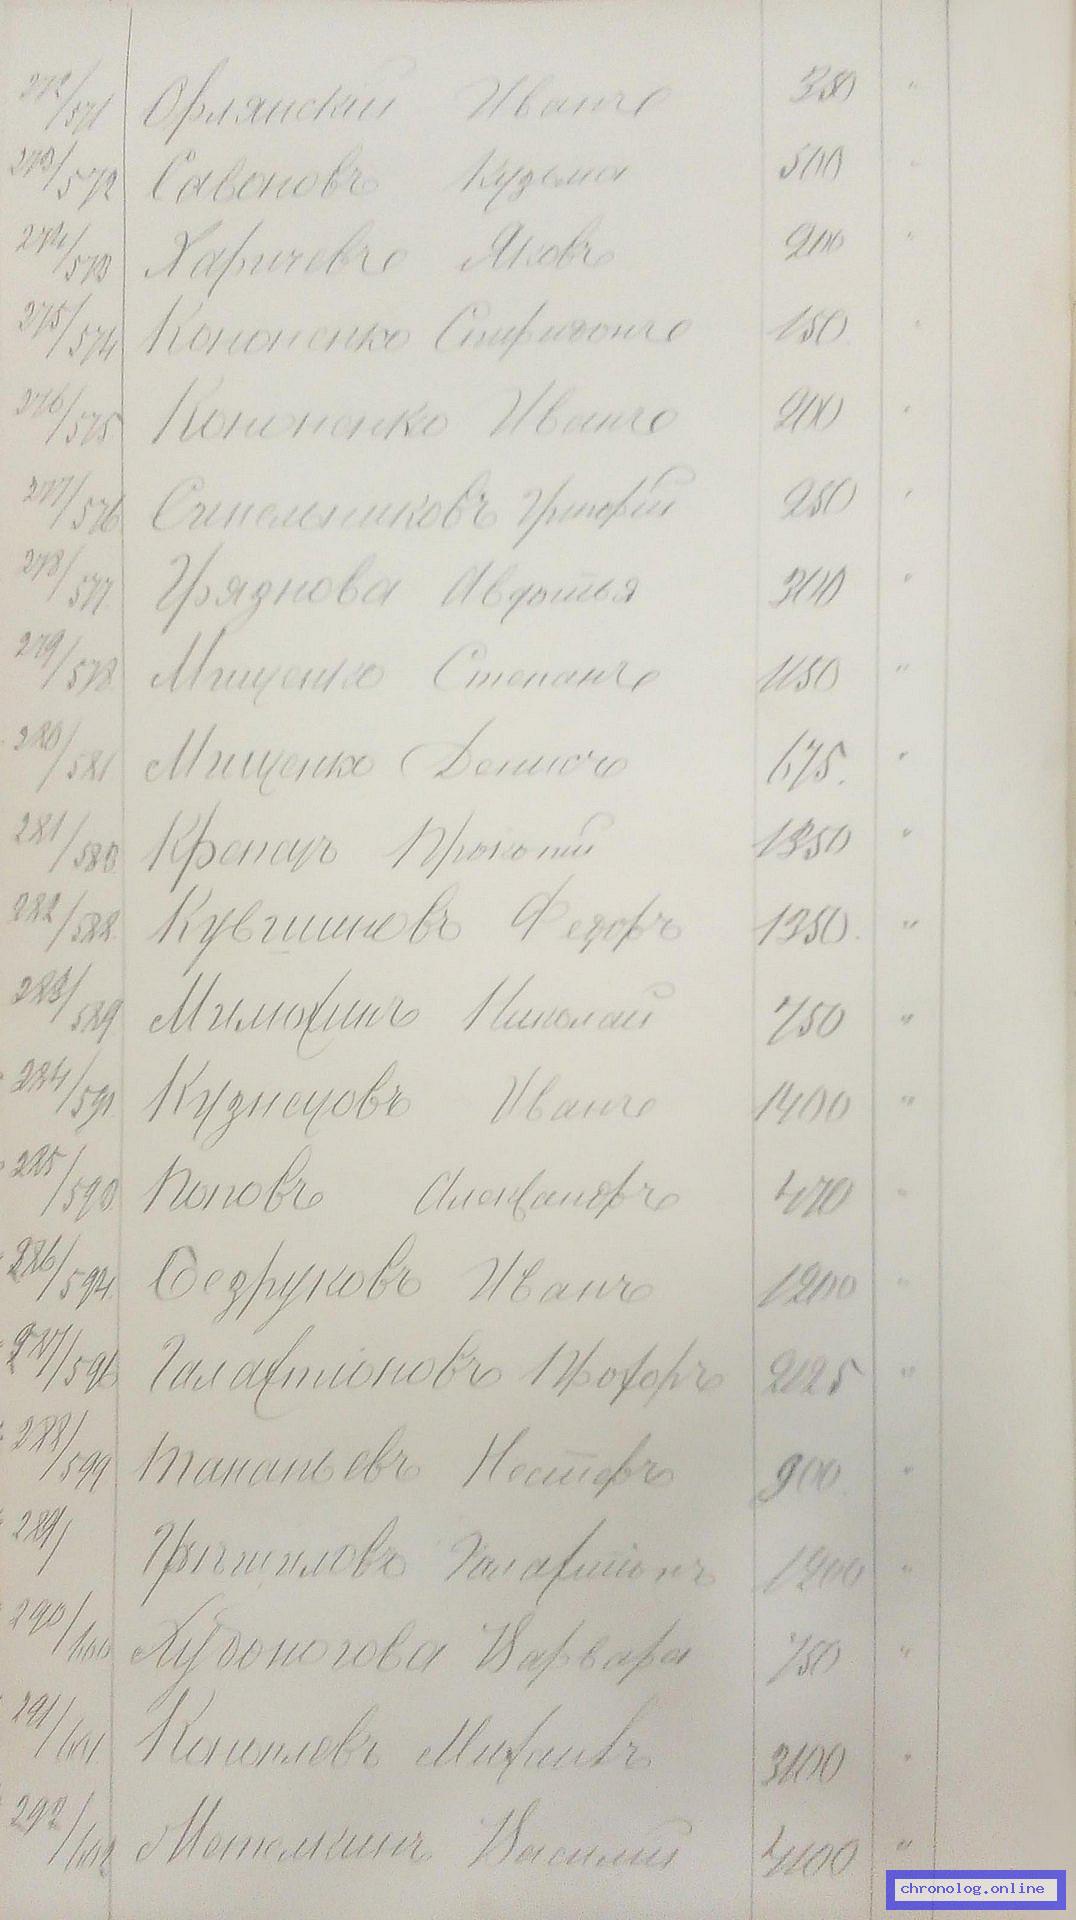 272/571 Орлянскій Иванъ 350 "
273/572 Савоновъ Кузьма 500 "
274/573 Харичевъ Яковъ 200 "
275/574 Кононенко Спиридонъ 150 "
276/575 Кононенко Иванъ 200 "
277/576 Синельниковъ Григорій 250 "
278/577 Грязнова Авдотья 300 "
279/578 Мищенко Степанъ 1150 "
280/581 Мищенко Денисъ 675. "
281/580 Прокопій 1350 "
282/588 Кувшиновъ Федоръ 1350. "
283/589 Милюхинъ Николай 750 "
284/591 Кузнецовъ Иванъ 1400 "
285/590 Поповъ Александръ 470 "
286/594 Седруковъ Иванъ 1200 "
287/596 Галактіоновъ Прохоръ 2025 "
288/599 Ананьевъ Несторъ 900 "
289/ Галактіонъ 1200 "
290/600 Худоногова Варвара 750 "
291/601 Коноплевъ Михаилъ 3100 "
292/602 Метелкинъ Василій 4100 "
chronolog.online